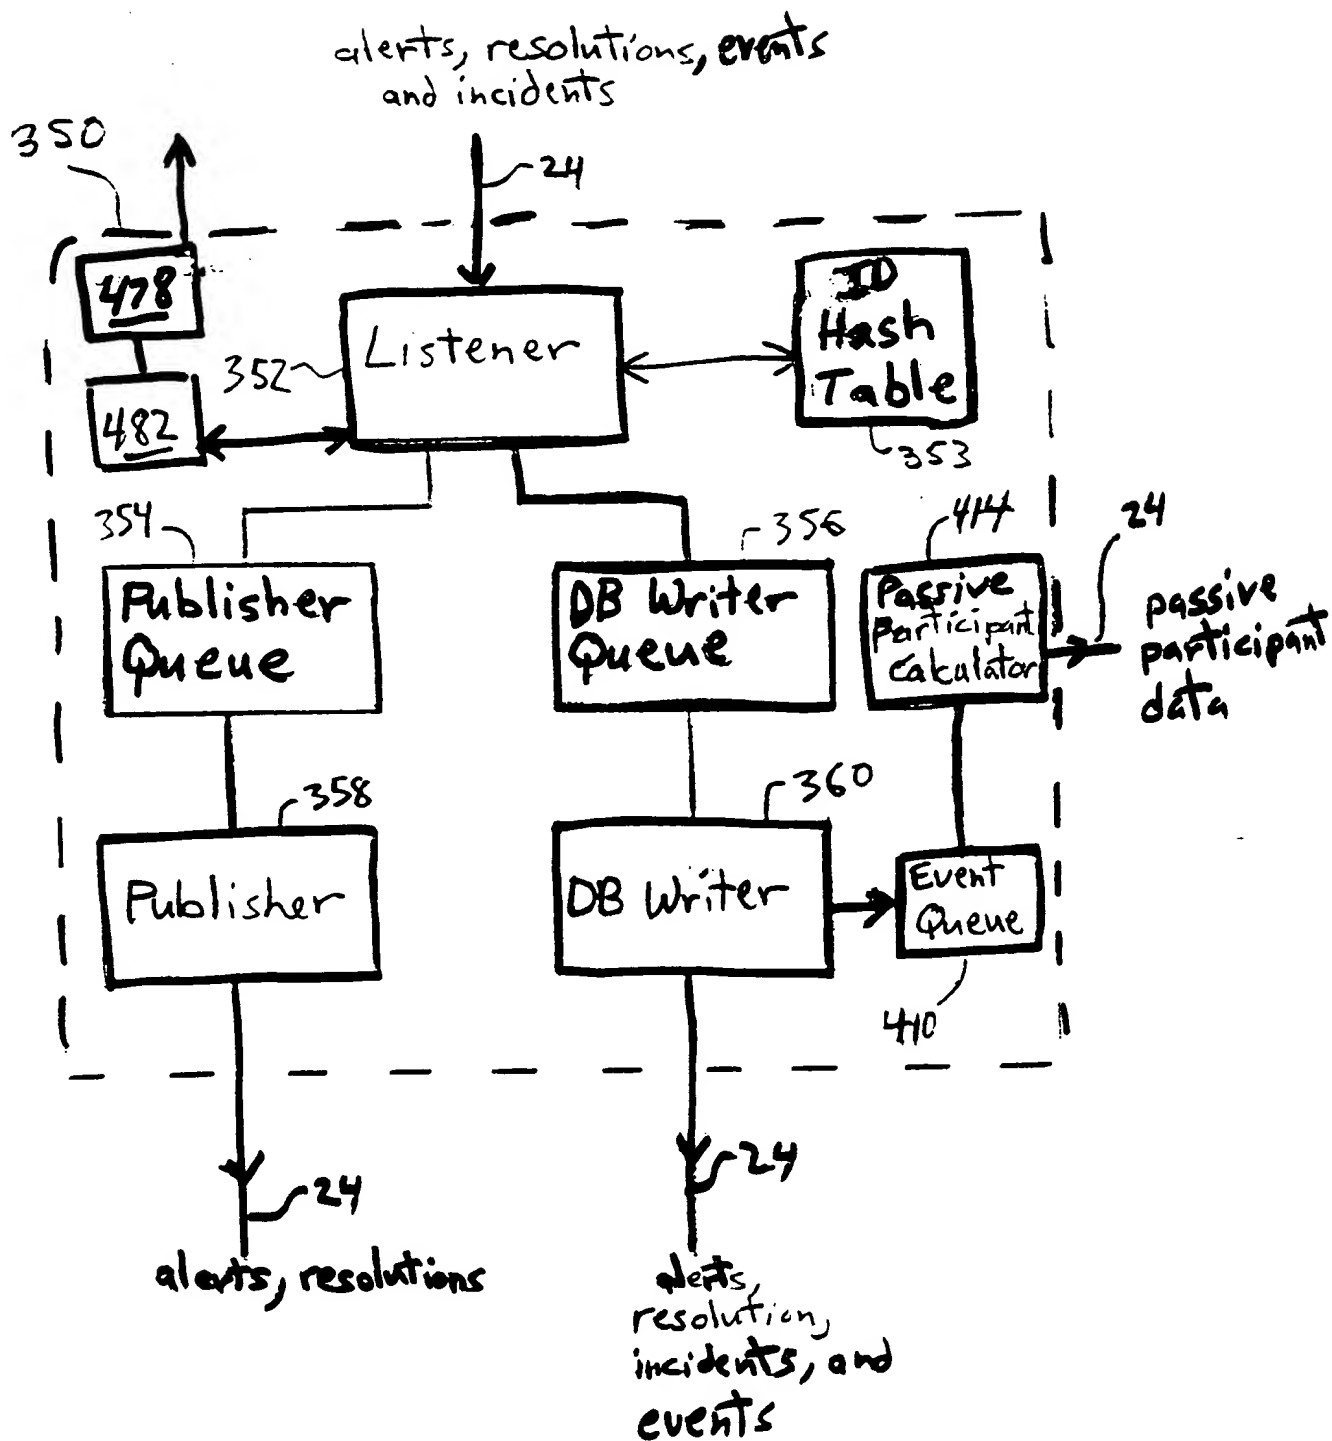 alerts, resolutions, events
and incidents
350
24
478
ID
Hash
Table
Listener
352
482
353
354
356
414
24
Publisher
Queue
DB Writer
Queue
Passive
Participant
Calculator
passive
participant
data
358
360
Publisher
DB Writer
Event
Queue
410
24
24
alerts, resolutions
alerts,
resolution,
incidents, and
events